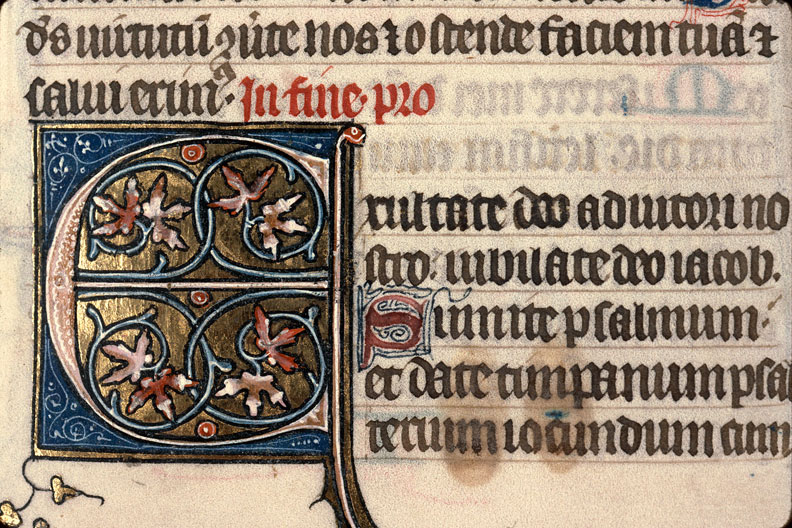 ds uirtutū ɔuīte nos ⁊ ostende faciem tuā ⁊
salui erim⁹. In fine pro
Exultate deo adiutori no
stro: iubilate deo iacob.
Sumite psalmum
et date timpanum psal
terium iocundum cum